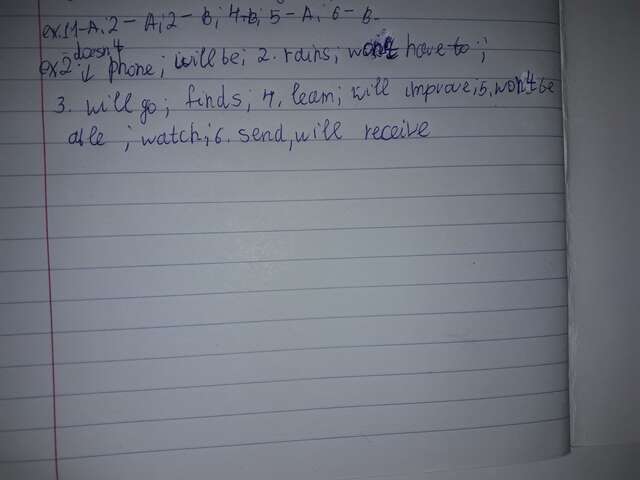 ex.1 1-A; 2 - A; 2 - B; 4-b; 5 - A; 6 - B.
doesn't
ex2. ↓ phone; will be; 2. rains; won't have to;
3. will go; finds; 4. learn; will improve; 5. won't be
able ; watch; 6. send, will receive